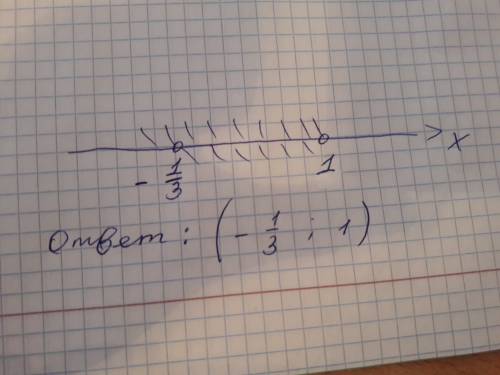 x
- 1/3 1
Ответ: (- 1/3 ; 1)